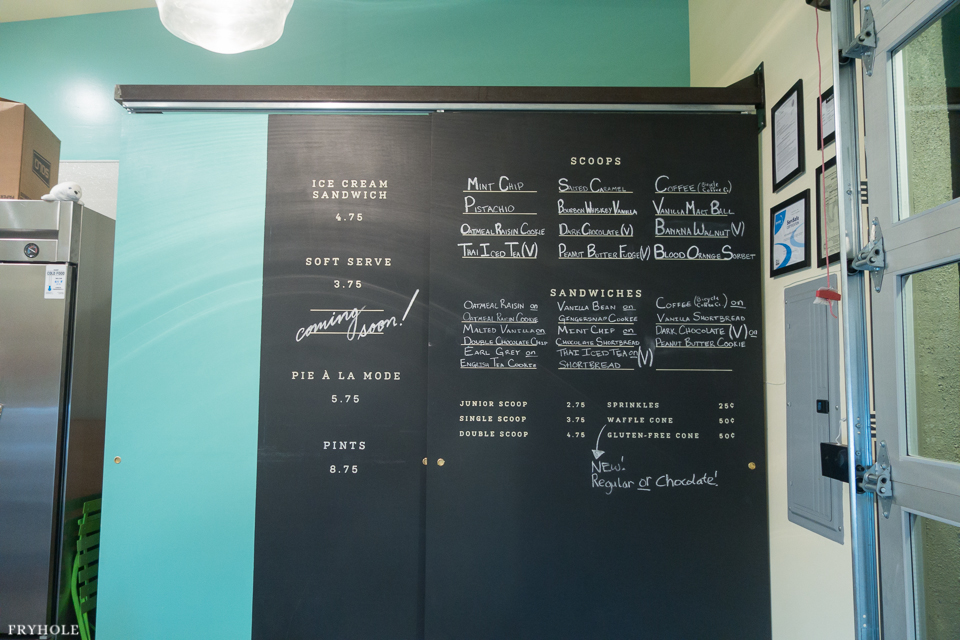 ICE CREAM
SANDWICH
4.75
SOFT SERVE
3.75
coming soon!
PIE À LA MODE
5.75
PINTS
8.75
SCOOPS
MINT CHIP
SALTED CARAMEL
COFFEE (Bicycle Coffee Co.)
PISTACHIO
BOURBON WHISKEY VANILLA
VANILLA MALT BALL
OATMEAL RAISIN COOKIE
DARK CHOCOLATE (V)
BANANA WALNUT (V)
THAI ICED TEA (V)
PEANUT BUTTER FUDGE (V)
BLOOD ORANGE SORBET
SANDWICHES
OATMEAL RAISIN on
OATMEAL RAISIN COOKIE
MALTED VANILLA on
DOUBLE CHOCOLATE CHIP
EARL GREY on
ENGLISH TEA COOKIE
VANILLA BEAN on
GINGERSNAP COOKIE
MINT CHIP on
CHOCOLATE SHORTBREAD
THAI ICED TEA on (V)
SHORTBREAD
COFFEE (Bicycle Coffee Co.) on
VANILLA SHORTBREAD
DARK CHOCOLATE (V) on
PEANUT BUTTER COOKIE
JUNIOR SCOOP 2.75
SINGLE SCOOP 3.75
DOUBLE SCOOP 4.75
SPRINKLES 25¢
WAFFLE CONE 50¢
GLUTEN-FREE CONE 50¢
NEW!
Regular or Chocolate!
FRYHOLE